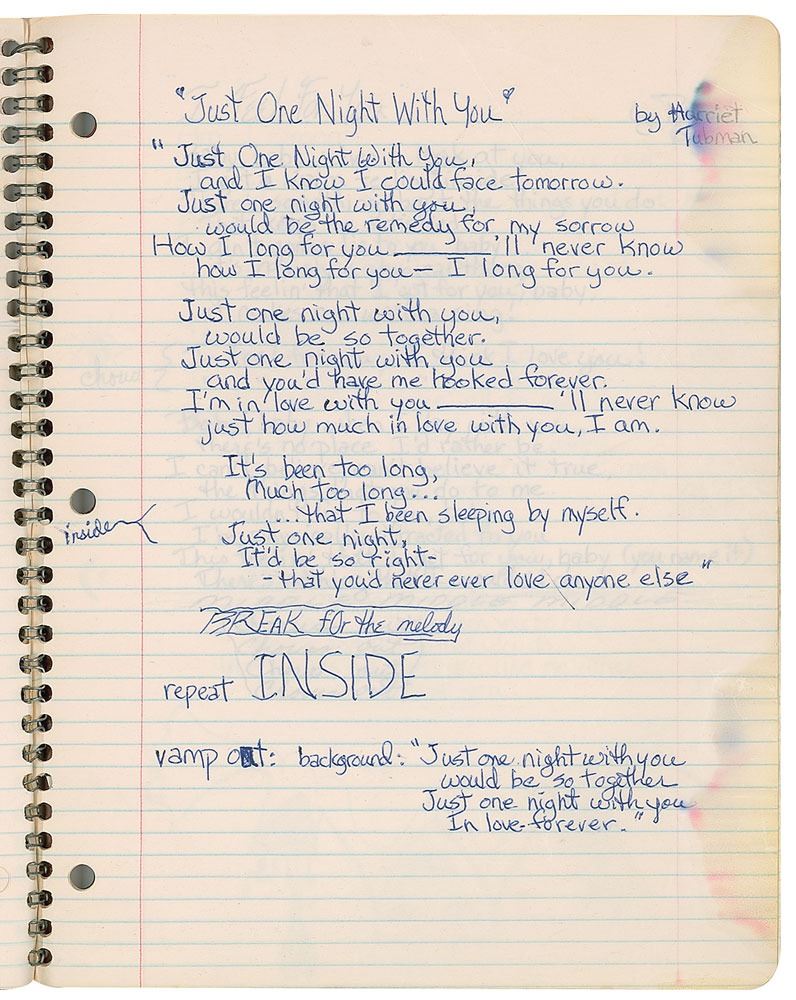 "Just One Night With You"
by Harriet
Tubman
"Just One Night With You,
and I know I could face tomorrow.
Just one night with you,
would be the remedy for my sorrow
How I long for you ________'ll never know
how I long for you — I long for you.
Just one night with you,
would be so together.
Just one night with you
and you'd have me hooked forever.
I'm in love with you ________'ll never know
just how much in love with you, I am.
It's been too long,
Much too long...
...that I been sleeping by myself.
inside
Just one night,
It'd be so right-
- that you'd never ever love anyone else"
BREAK for the melody
repeat INSIDE
vamp out: background: "Just one night with you
would be so together
Just one night with you
In love-forever."